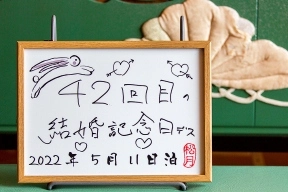 42回目の
結婚記念日デス
2022年5月11日泊
松月